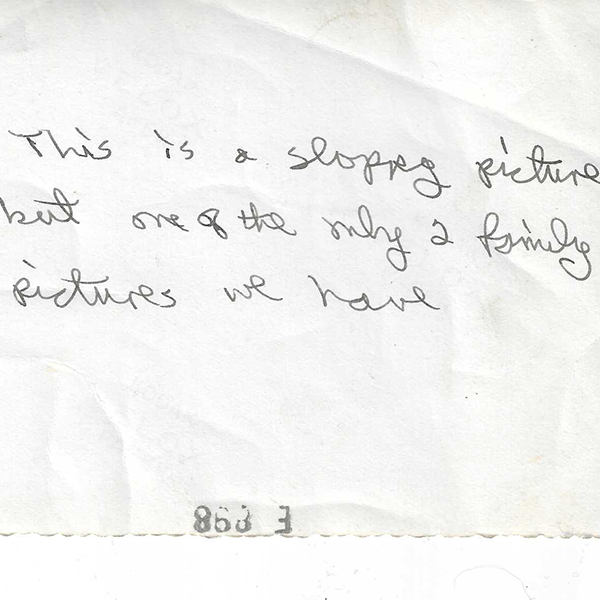 This is a sloppy picture
but one of the only 2 family
pictures we have